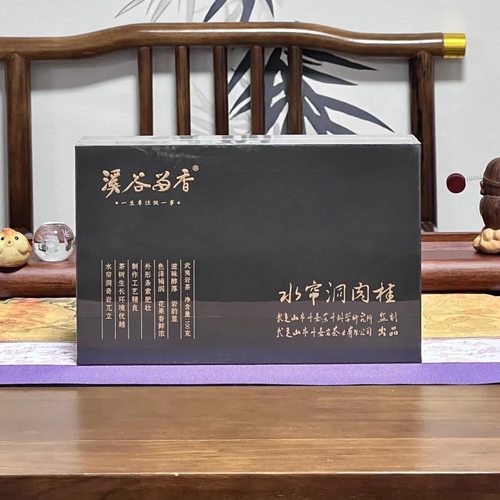 溪谷留香®
•一生专注做一事•
武夷岩茶 净含量:100克
滋味醇厚 岩韵显
色泽褐润 花果香鲜浓
外形条索肥壮
制作工艺精良
茶树生长环境优越
水帘洞奇岩兀立
水帘洞肉桂
武夷山市
研究所 监制
武夷山市
岩茶
有限公司 出品